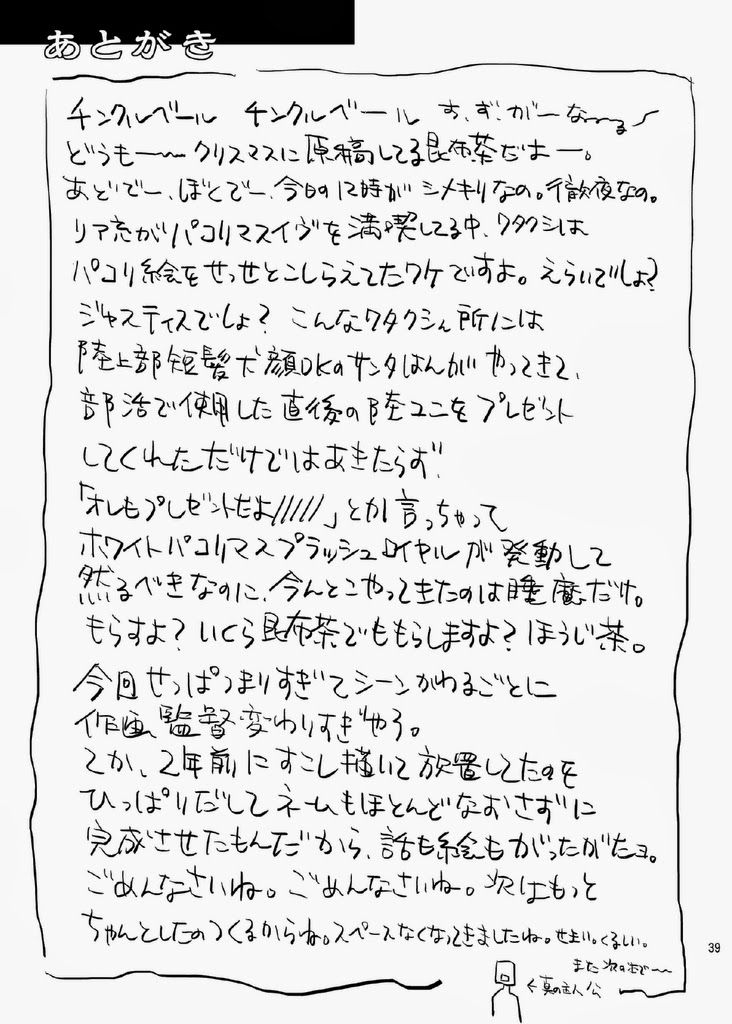 あとがき
チンクルベール チンクルベール す、ず、がーなーーる〜
どうもー〜クリスマスに原稿してる昆布茶だはー。
あどでー、ぼとでー、今日の12時がシメキリなの。行徹夜なの。
リア充がパコリマスイヴを満喫してる中、ワタクシは
パコリ絵をせっせとこしらえてたワケですよ。えらいでしょ?
ジャスティスでしょ? こんなワタクシん所には
陸上部短髪犬顔DKのサンタはんがやってきて、
部活で使用した直後の陸ユニをプレゼント
してくれただけではあきたらず、
「オレもプレゼントだよ/////」とか言っちゃって
ホワイトパコリマスプラッシュロイヤルが発動して
然るべきなのに、今んとこやってきたのは睡魔だけ。
もらすよ? いくら昆布茶でももらしますよ? ほうじ茶。
今回せっぱつまりすぎてシーンかわるごとに
作画監督変わりすぎやろ。
てか、2年前にすこし描いて放置してたのを
ひっぱりだしてネームもほとんどなおさずに
完成させたもんだから、話も絵もがったがたョ。
ごめんなさいね。ごめんなさいね。次はもっと
ちゃんとしたのつくるからね。スペースなくなってきましたね。せまい。くるしい。
また次の本で〜〜
←真の主人公
39